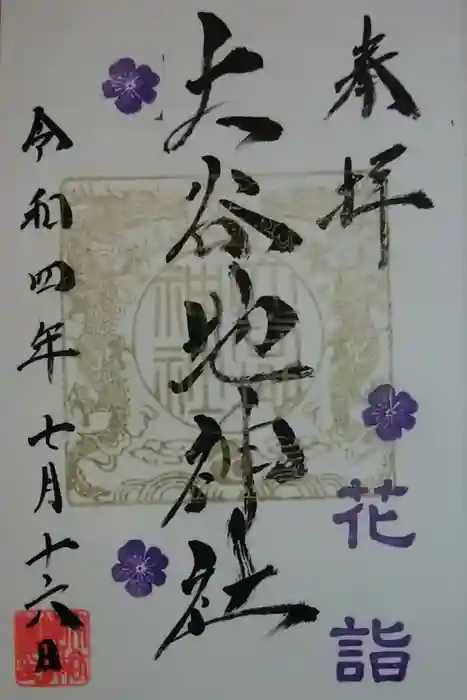 奉拝
花詣
大谷地神社
令和四年七月十六日